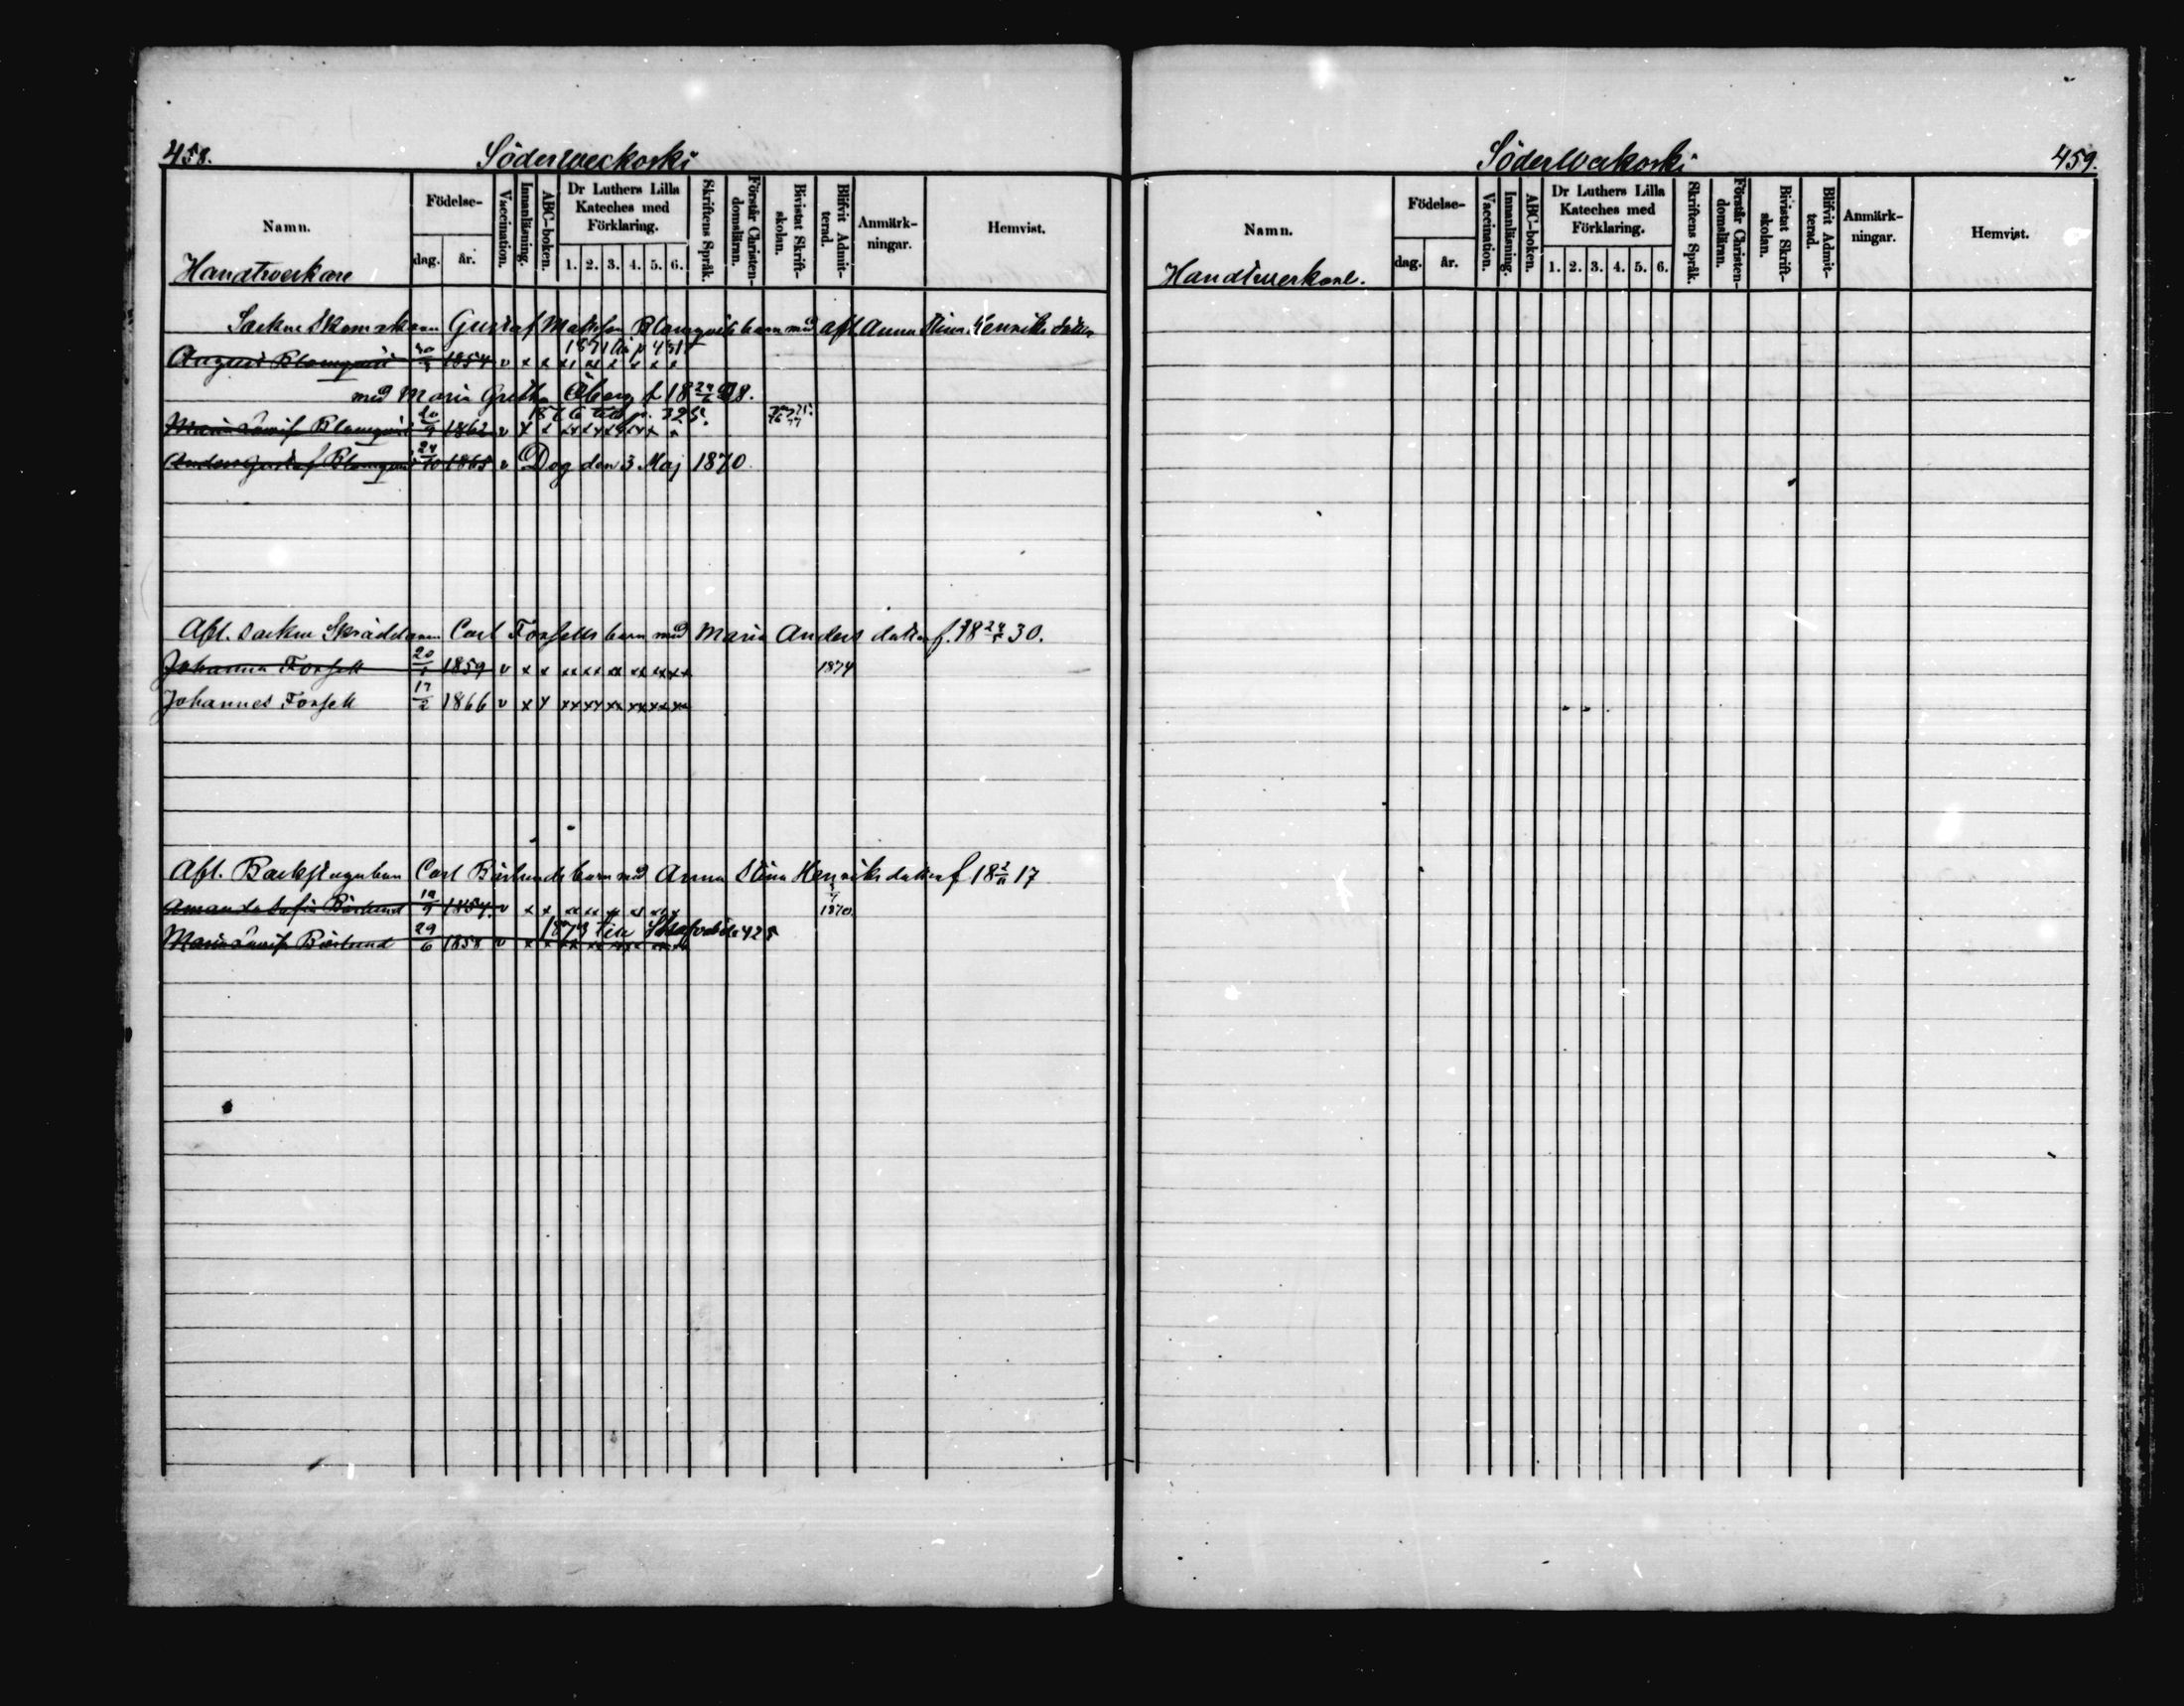 458.
Söderweckoski
Namn.
Födelse-
dag.
år.
Vaccination.
Innanläsning.
ABC-boken.
Dr Luthers Lilla
Kateches med
Förklaring.
1. 2. 3. 4. 5. 6.
Skriftens Språk.
Förstår Christen-
domsläran.
Bivistat Skrift-
skolan.
Blifvit Admit-
terad.
Anmärk-
ningar.
Hemvist.
Handtverkare
Sockne Skomakaren Gustaf Matsson Blomqvists barn med afl Anna Stina Henriks dotter
1871 till p 431
August Blomqvist 1854 v x x
med Maria Gretha Öberg f 18 24/6 28.
1876 till p. 325.
Maria Lovisa Blomqvist 20/9 1862 v x x
Anders Gustaf Blomqvist 24/10 1865 v Dog den 3 Maj 1870
Afl. Sockne Skräddaren Carl Forsells barn med Maria Anders dotter f. 18 24/5 30.
Johanna Forsell 20/1 1859 v x x xx xx xx xx xx xx 1874
Johannes Forsell 17/2 1866 v x x xx xx xx xx xx xx
Afl. Backstugubon Carl Börlunds barn med Anna Stina Henriks dotter f 18 2/11 17
Amanda Sofia Börlund 19/9 1854 v x x xx xx xx xx xx 1870
1873 till 428
Maria Lovisa Börlund 29/6 1858 v x x xx xx xx xx xx
Söderweckoski
459.
Namn.
Födelse-
dag.
år.
Vaccination.
Innanläsning.
ABC-boken.
Dr Luthers Lilla
Kateches med
Förklaring.
1. 2. 3. 4. 5. 6.
Skriftens Språk.
Förstår Christen-
domsläran.
Bivistat Skrift-
skolan.
Blifvit Admit-
terad.
Anmärk-
ningar.
Hemvist.
Handtverkare.